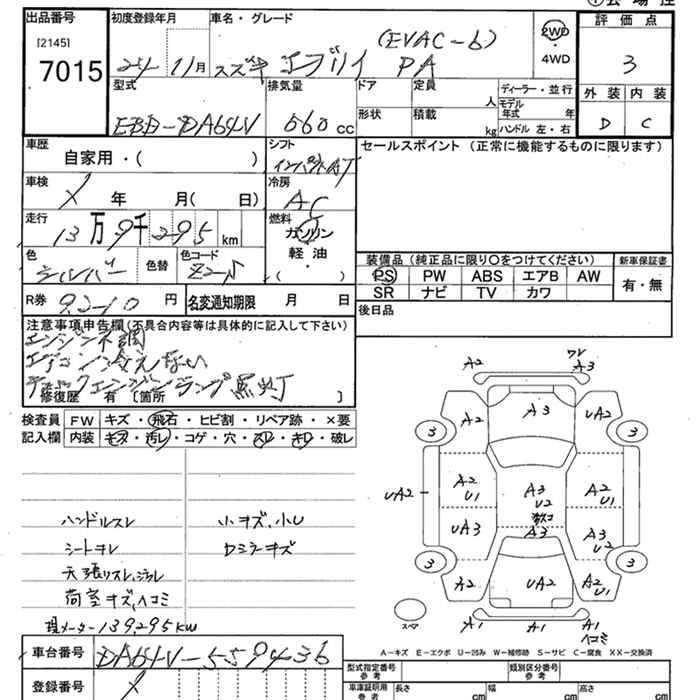 ①会場控
出品番号
[2145]
7015
初度登録年月
24年 11月
車名・グレード
(EVAC-6)
スズキ エブリイ PA
2WD
・
4WD
評価点
3
外装 内装
D C
型式
EBD-DA64V
排気量
660 cc
ドア
形状
定員 人
積載 kg
ディーラー・並行
モデル年式 年
ハンドル 左・右
車歴
自家用・( )
シフト
インパネAT
車検
✓ 年 月( 日)
冷房
AC
走行
13万9千295 km
燃料
ガソリン
軽・油
( )
色
シルバー
色替
色コード
Z2S
R券
9210 円
名変通知期限 月 日
セールスポイント (正常に機能するものに限ります)
装備品 (純正品に限り〇をつけてください)
新車保証書
PS PW ABS エアB AW
SR ナビ TV カワ
有・無
後日品
注意事項申告欄(不具合内容等は具体的に記入して下さい)
エンジン不調
エアコン冷えない
チェックエンジンランプ点灯
修復歴 有 〔箇所 〕
検査員
記入欄
FW キズ・飛石・ヒビ割・リペア跡・×要
内装 キズ・汚レ・コゲ・穴・スレ・キレ・破レ
ハンドルスレ
シートヨレ
天張リスレ、シワ
荷室キズ、ヘコミ
小キズ、小U
Dミラーキズ
現メーター139,295km
車台番号 DA64V-559436
登録番号
A2
ワレ
A3
3
A2
A3
UA2
3
UA2
A2
U1
A3
U2
A2
U1
UA3
A3
A3
U2
3
A2
UA2
A2
U1
3
スペア
A1 A1 A1
ヘコミ
A―キズ E―エクボ U―凹み W―補修跡 S―サビ C―腐食 XX―交換済
型式指定番号
参考
類別区分番号
参考
車庫証明用
参考
長さ cm
幅 cm
高さ cm